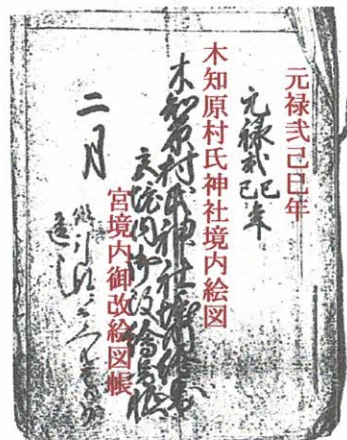 元禄弐己巳年
元禄弐己巳年
木知原村氏神社境内絵図
木知原村氏神社境内絵図
宮境内御改絵図帳
宮境内御改繪図帳
二月